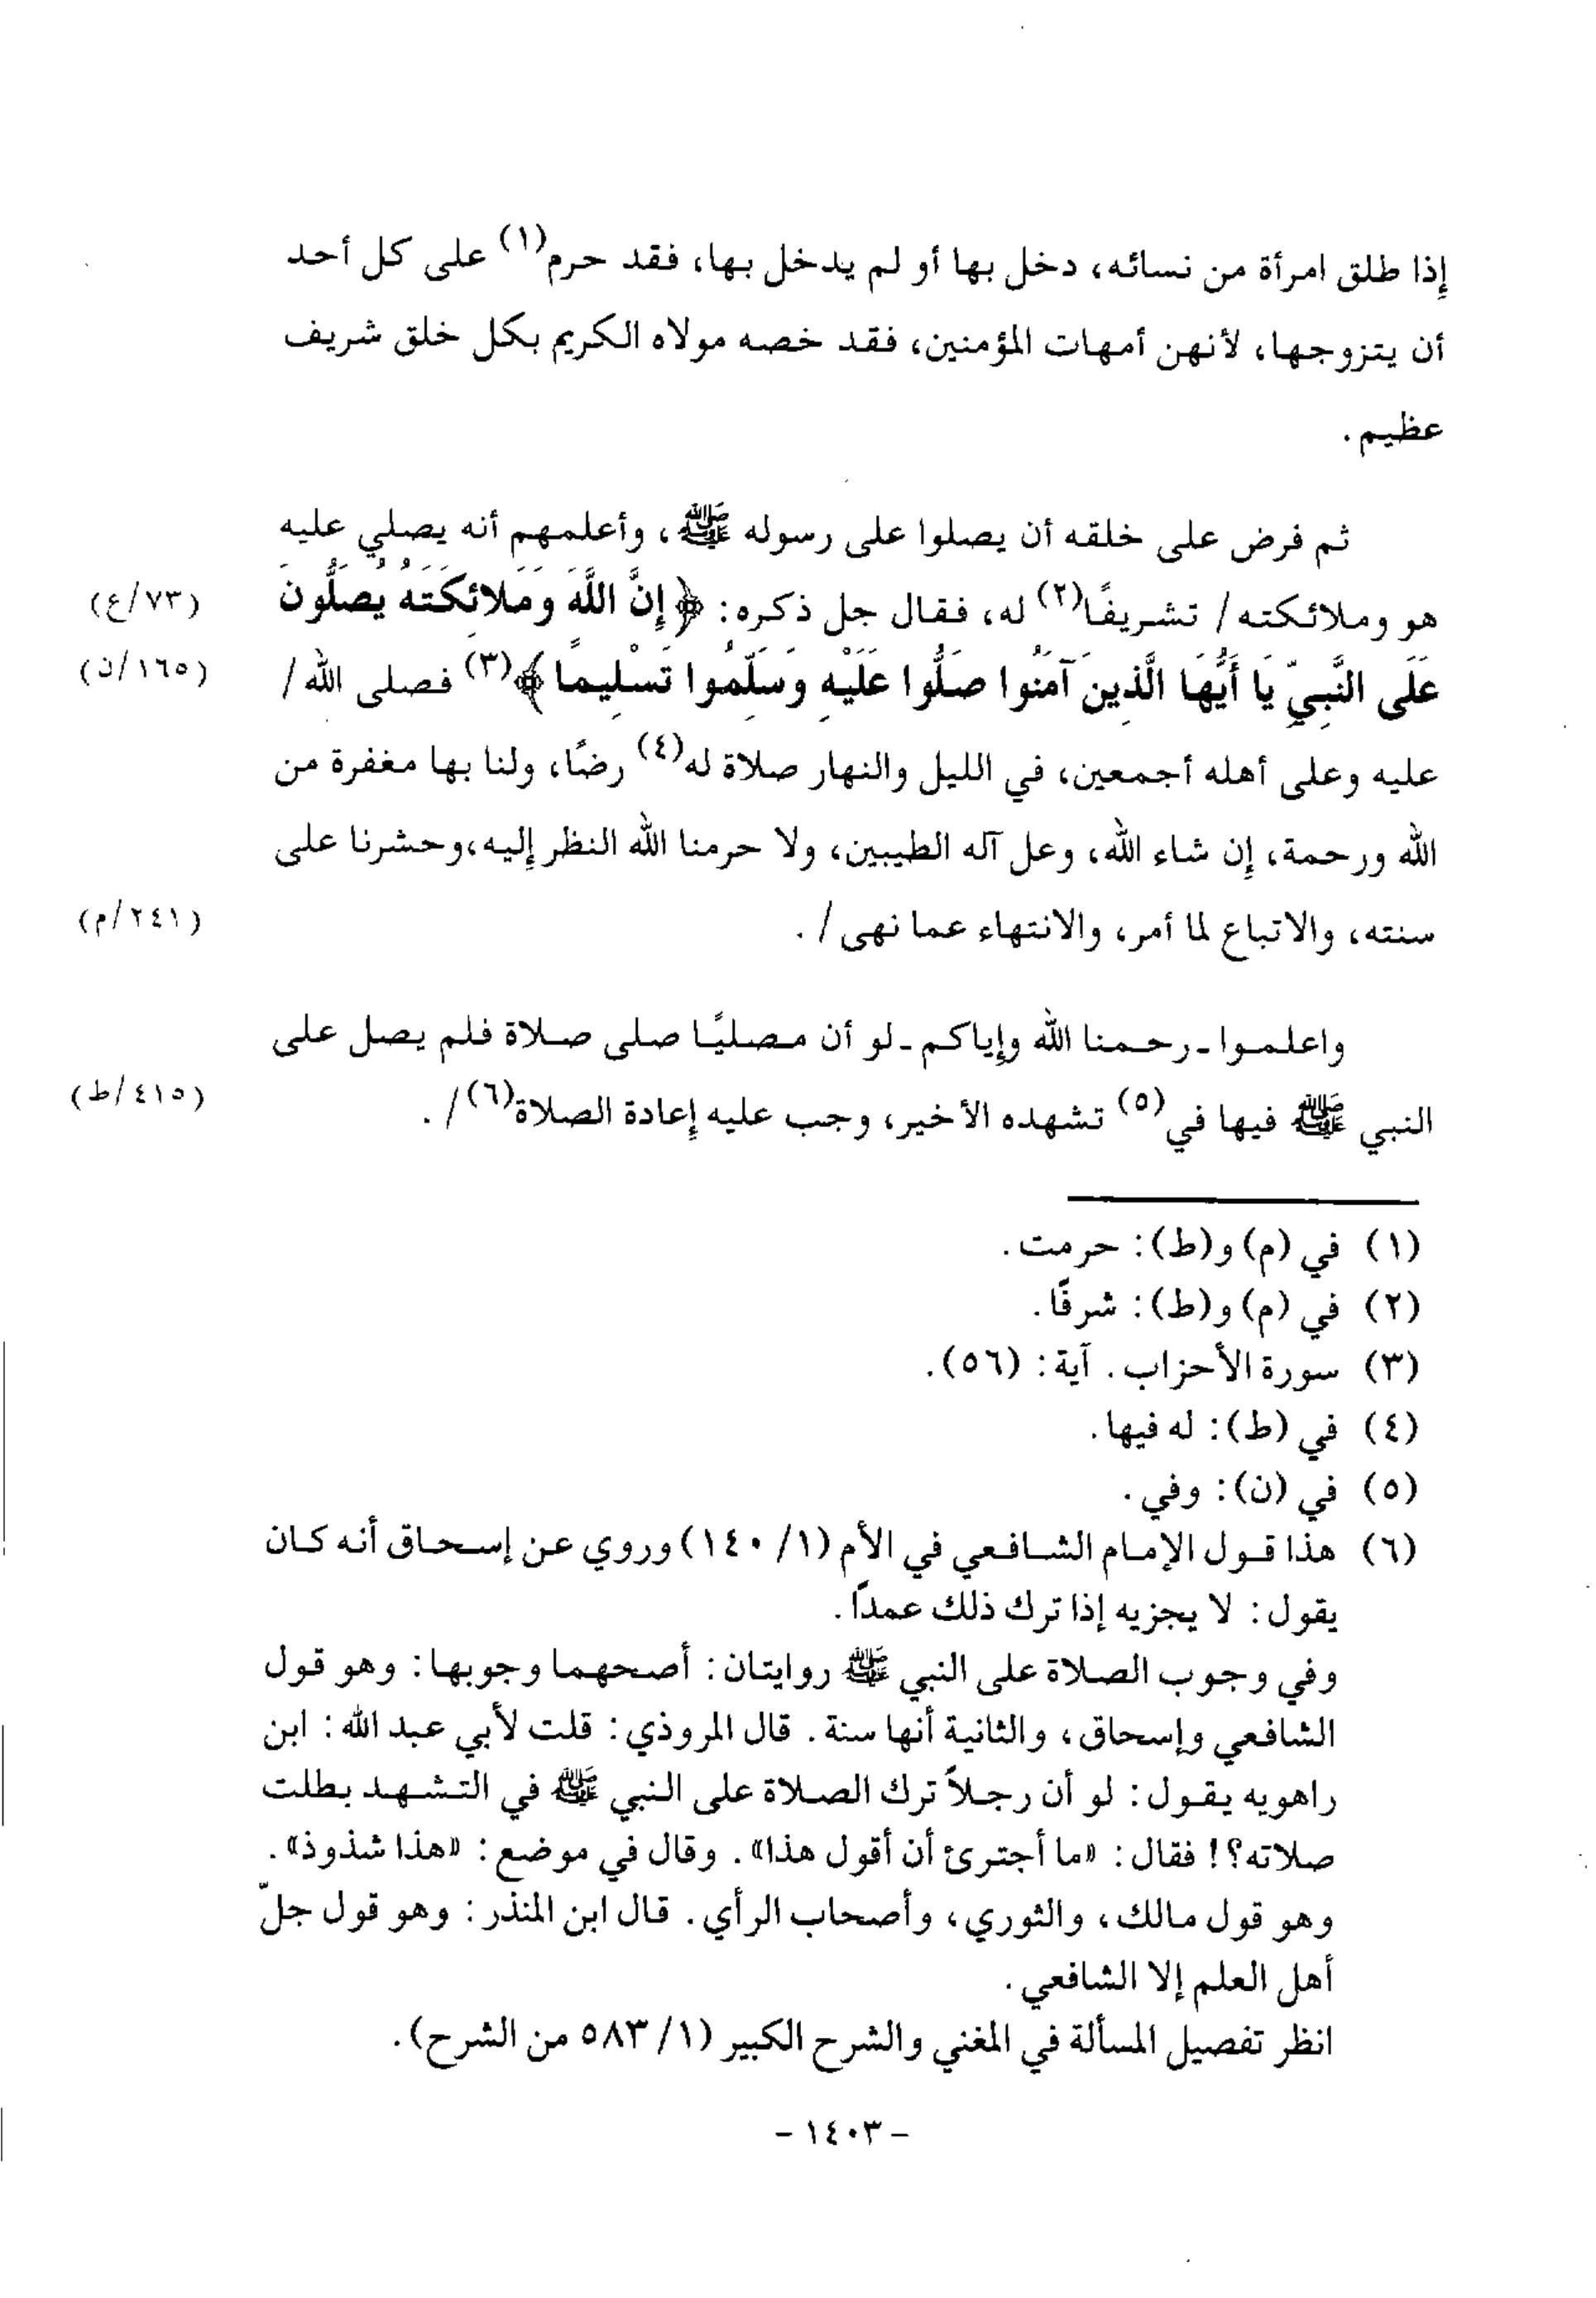 إذا طلق امرأة من نسائه، دخل بها أو لم يدخل بها، فقد حرم(١) على كل أحد
أن يتزوجها، لأنهن أمهات المؤمنين، فقد خصه مولاه الكريم بكل خلق شريف
عظيم.
ثم فرض على خلقه أن يصلوا على رسوله ﷺ، وأعلمهم أنه يصلي عليه
هو وملائكته/ تشريفًا(٢) له، فقال جل ذكره: ﴿إِنَّ اللَّهَ وَمَلائِكَتَهُ يُصَلُّونَ (٧٣/ع)
عَلَى النَّبِيِّ يَا أَيُّهَا الَّذِينَ آمَنُوا صَلُّوا عَلَيْهِ وَسَلِّمُوا تَسْلِيمًا﴾(٣) فصلى الله/ (١٦٥/ن)
عليه وعلى أهله أجمعين، في الليل والنهار صلاة له(٤) رضًا، ولنا بها مغفرة من
الله ورحمة، إن شاء الله، وعل آله الطيبين، ولا حرمنا الله النظر إليه،وحشرنا على
سنته، والاتباع لما أمر، والانتهاء عما نهى/. (٢٤١/م)
واعلموا ـ رحمنا الله وإياكم ـ لو أن مصليًا صلى صلاة فلم يصل على
النبي ﷺ فيها في(٥) تشهده الأخير، وجب عليه إعادة الصلاة(٦)/. (٤١٥/ط)
(١) في (م) و(ط): حرمت.
(٢) في (م) و(ط): شرفًا.
(٣) سورة الأحزاب. آية: (٥٦).
(٤) في (ط): له فيها.
(٥) في (ن): وفي.
(٦) هذا قول الإمام الشافعي في الأم (١/ ١٤٠) وروي عن إسحاق أنه كان
يقول: لا يجزيه إذا ترك ذلك عمدًا.
وفي وجوب الصلاة على النبي ﷺ روايتان: أصحهما وجوبها: وهو قول
الشافعي وإسحاق، والثانية أنها سنة. قال المروذي: قلت لأبي عبد الله: ابن
راهويه يقول: لو أن رجلاً ترك الصلاة على النبي ﷺ في التشهد بطلت
صلاته؟! فقال: «ما أجترئ أن أقول هذا». وقال في موضع: «هذا شذوذ».
وهو قول مالك، والثوري، وأصحاب الرأي. قال ابن المنذر: وهو قول جلّ
أهل العلم إلا الشافعي.
انظر تفصيل المسألة في المغني والشرح الكبير (١/ ٥٨٣ من الشرح).
- ١٤٠٣ -